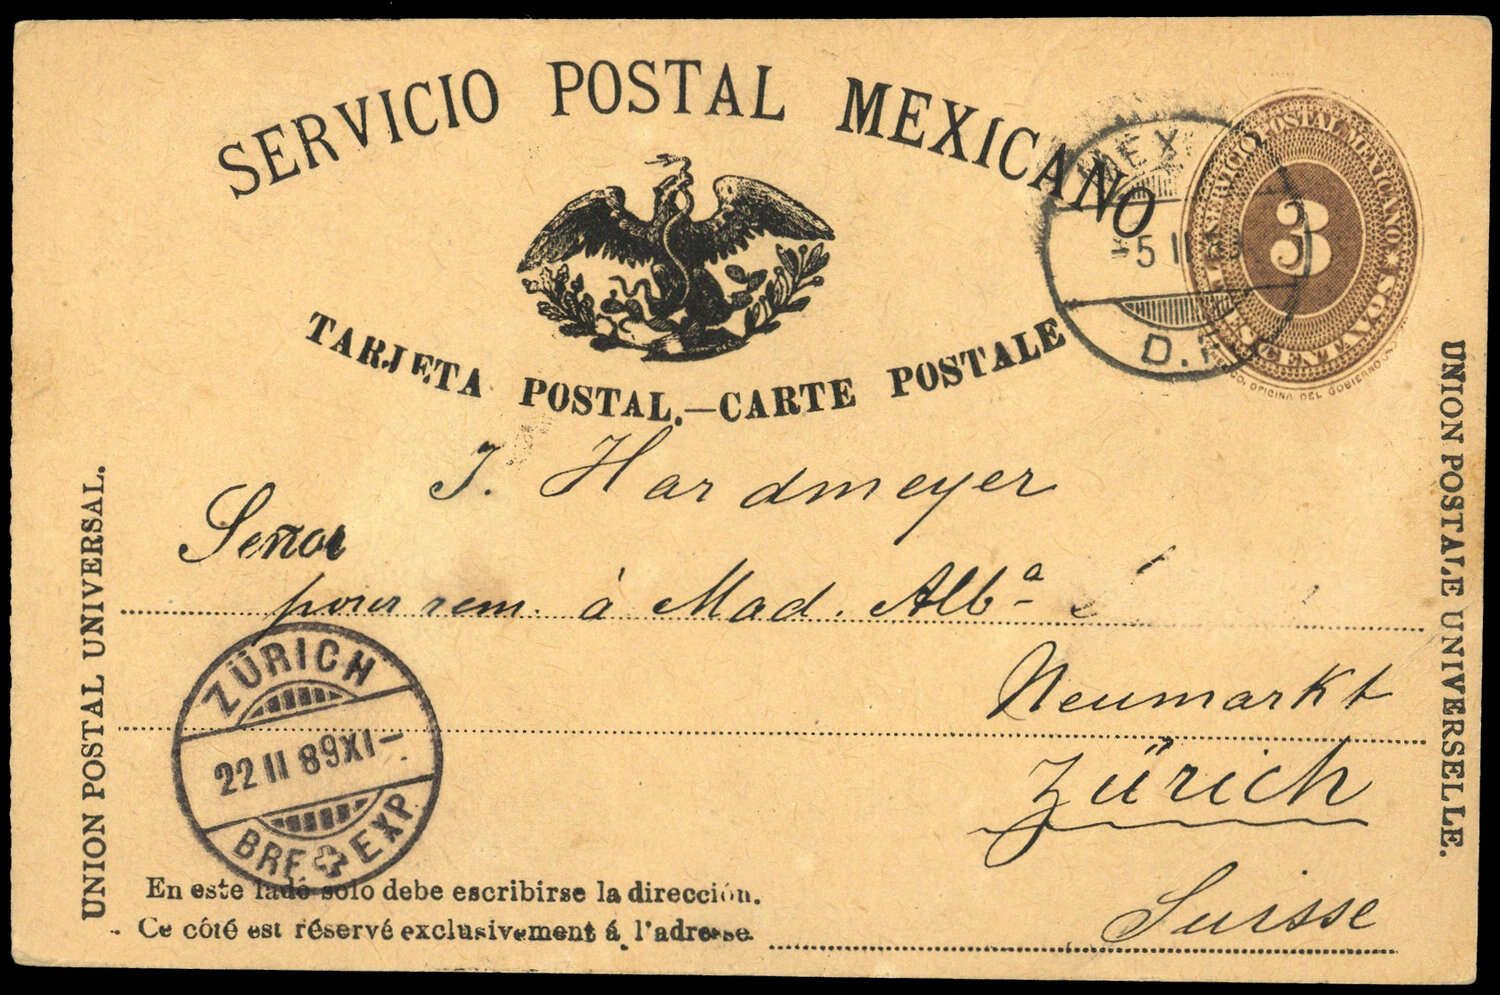 SERVICIO POSTAL MEXICANO
SERVICIO POSTAL MEXICANO
3
CENTAVOS
OFICINA DEL GOBIERNO
5 II
D.F.
TARJETA POSTAL.—CARTE POSTALE
UNION POSTAL UNIVERSAL.
UNION POSTALE UNIVERSELLE.
J. Hardmeyer
Señor
pour rem. à Mad. Alb.ª
Neumarkt
Zürich
Suisse
ZÜRICH
22 II 89 XI–
BRF. EXP
En este lado solo debe escribirse la dirección.
Ce côté est réservé exclusivement á l'adresse.